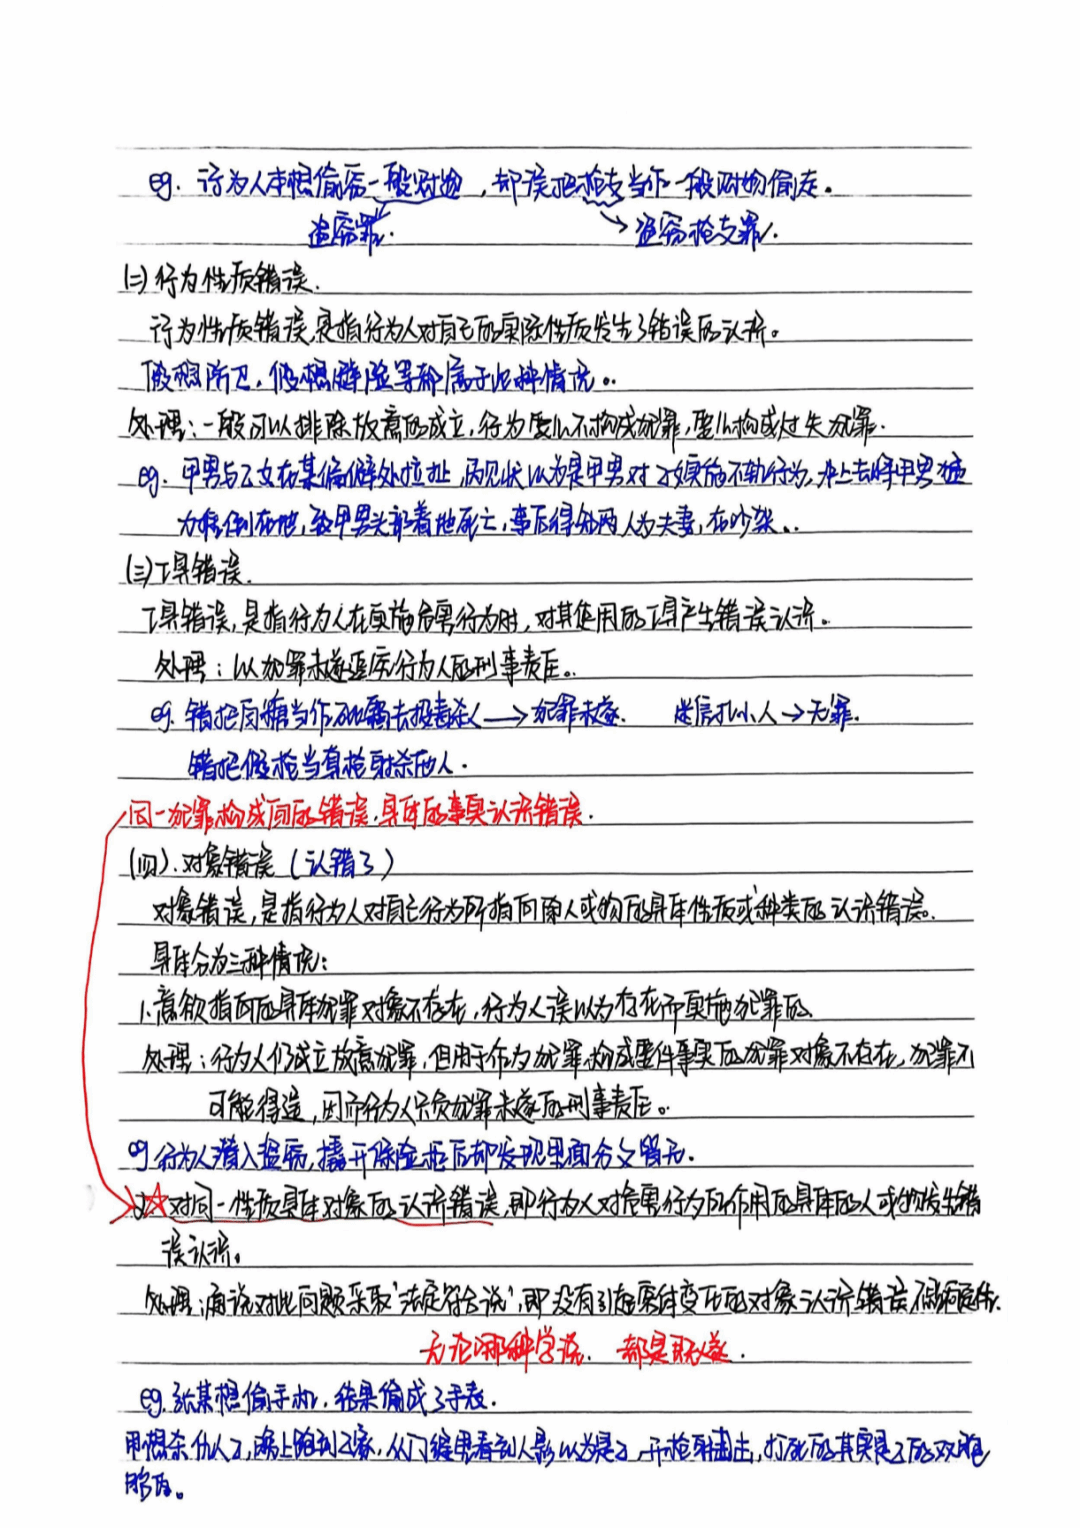 eg. 行为人本想偷窃一般财物，却误把枪支当作一般财物偷走。
盗窃罪. 盗窃枪支罪.
(二) 行为性质错误.
行为性质错误,是指行为人对自己的实际性质发生了错误的认识。
假想防卫,假想避险等都属于此种情况。
处理:一般可以排除故意的成立,行为要么不构成犯罪,要么构成过失犯罪.
eg. 甲男与乙女在某偏僻处拉扯,丙见状以为是甲男对乙女实施不轨行为,冲上去将甲男猛
力摔倒在地,致甲男头部着地死亡,事后得知两人为夫妻,在吵架.
(三) 工具错误.
工具错误,是指行为人在实施危害行为时,对其使用的工具产生错误认识。
处理:以犯罪未遂追究行为人的刑事责任。
eg. 错把白糖当作砒霜去投毒杀人→犯罪未遂. 迷信扎小人→无罪.
错把假枪当真枪射杀他人.
同一犯罪构成间的错误.具体的事实认识错误.
(四). 对象错误 (认错了)
对象错误,是指行为人对自己行为所指向的人或物的具体性质或种类的认识错误.
具体分为三种情况:
1.意欲指向的具体犯罪对象不存在,行为人误以为存在而实施犯罪的
处理:行为人仍成立故意犯罪,但由于作为犯罪构成要件事实的犯罪对象不存在,犯罪不
可能得逞,因而行为人只负犯罪未遂的刑事责任。
eg.行为人潜入盗窃,撬开保险柜后却发现里面分文皆无.
2.☆对同一性质具体对象的认识错误,即行为人对危害行为所作用的具体的人或物发生错
误认识。
处理:通说对此问题采取“法定符合说”,即没有引起客体变化的对象认识错误不影响定性.
无论哪种学说. 都是既遂.
eg.张某想偷手机,结果偷成了手表.
甲想杀仇人乙,晚上跑到乙家,从门缝里看到人影以为是乙,开枪射击,打死的其实是乙的双胞
胎哥。